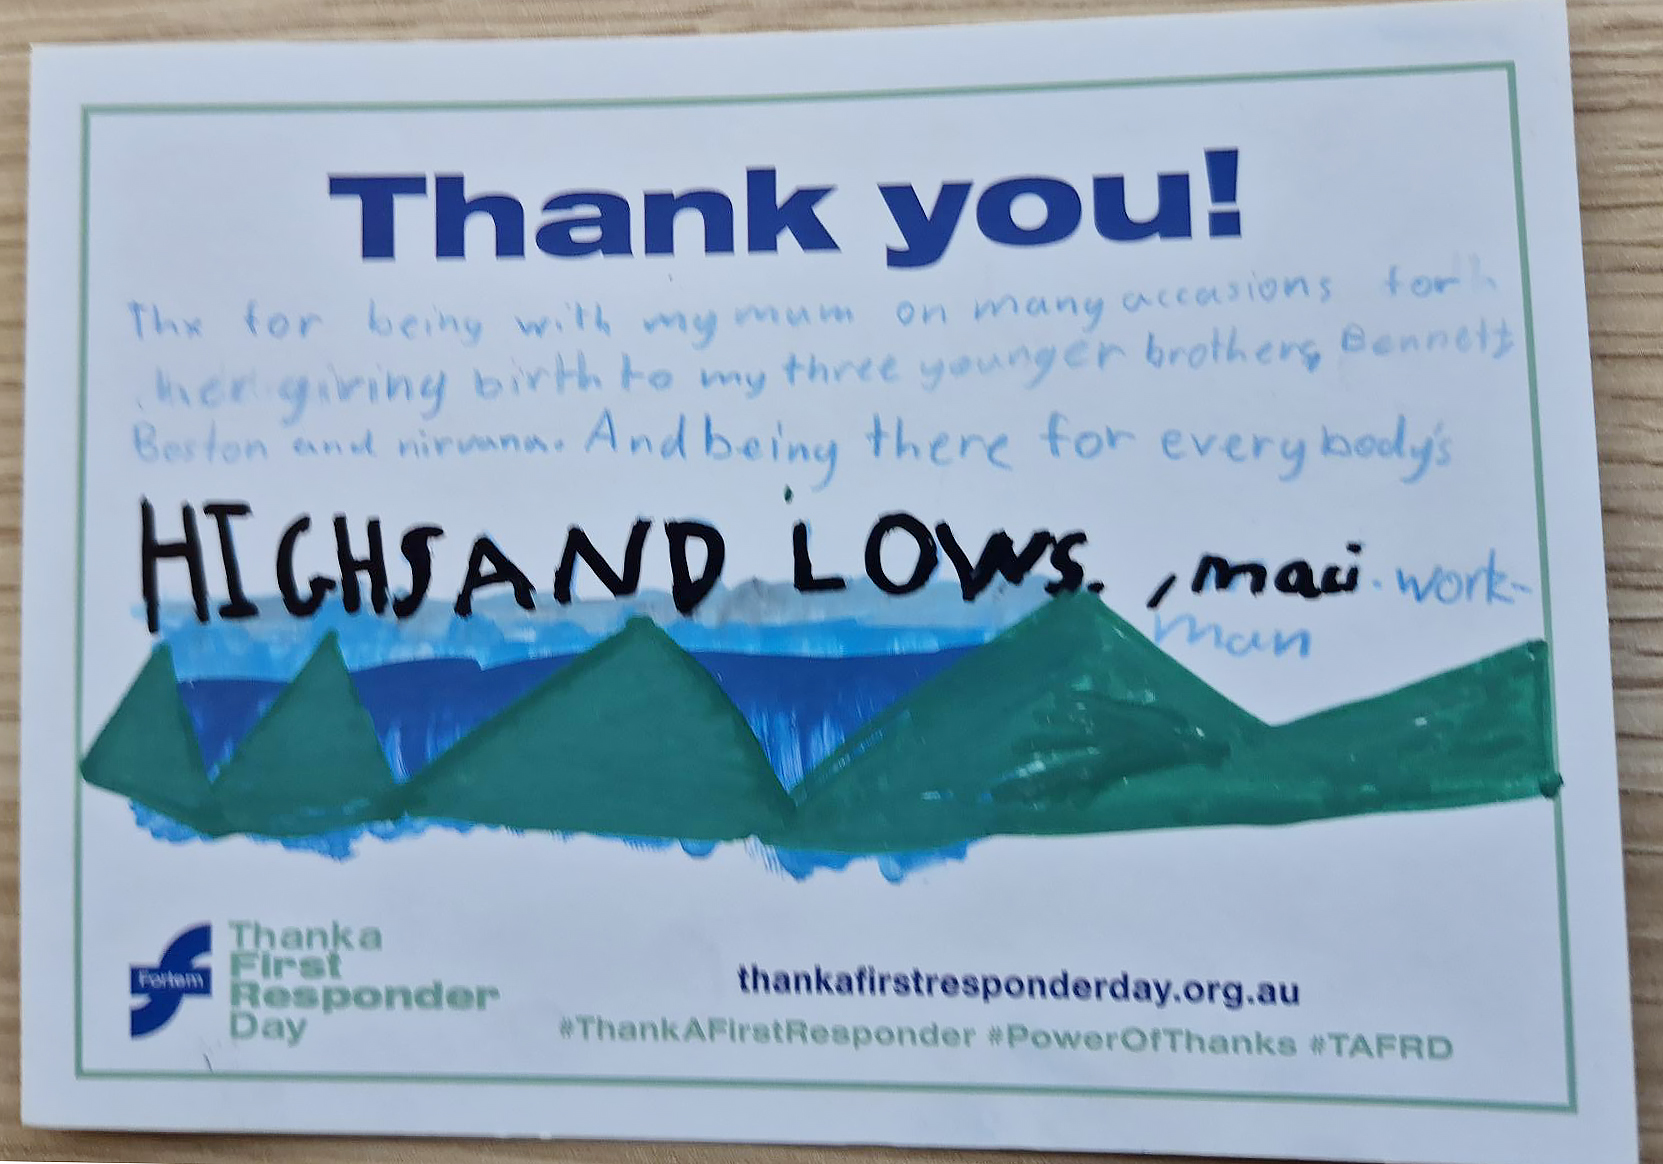 Thank you!
Thx for being with my mum on many accasions for
her giving birth to my three younger brothers, Bennett
Boston and nirvana. And being there for everybody's
HIGHS AND LOWS. , maui. work-
man
Fortem
Thank a
First
Responder
Day
thankafirstresponderday.org.au
#ThankAFirstResponder #PowerOfThanks #TAFRD